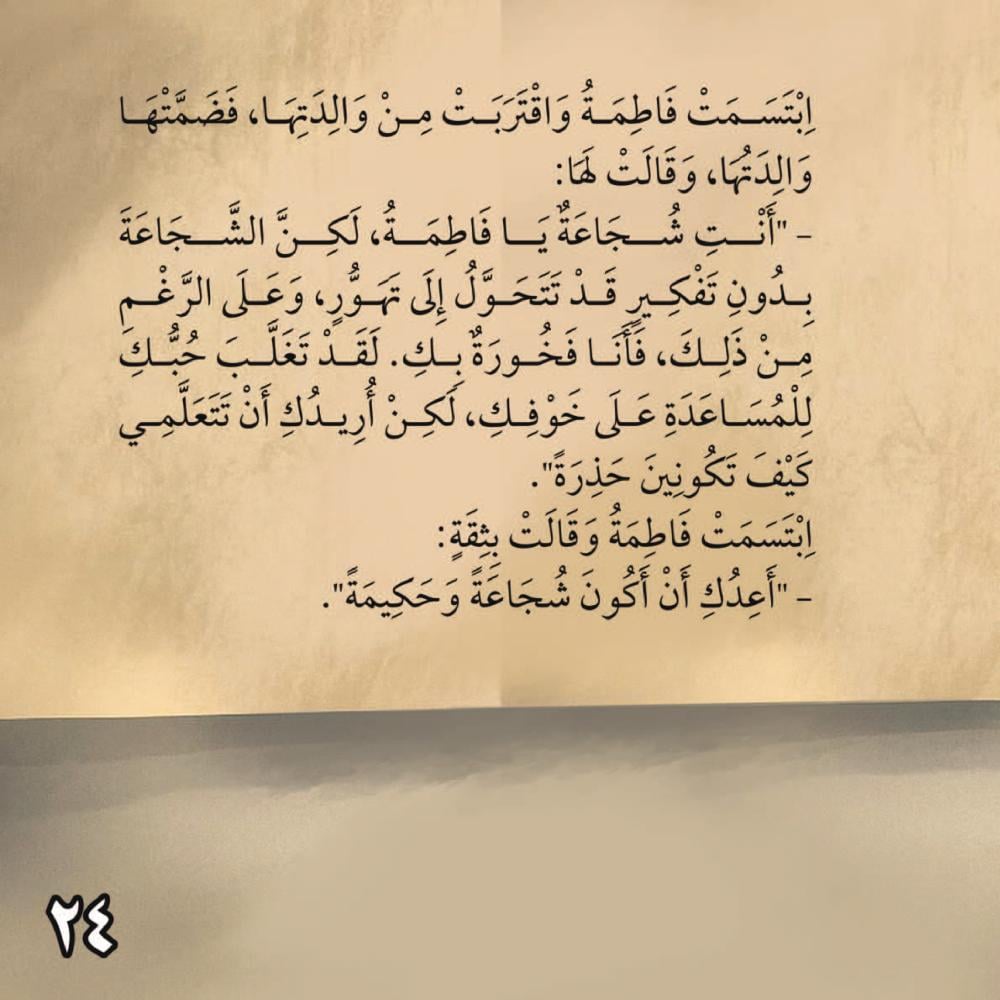 اِبْتَسَمَتْ فَاطِمَةُ وَاقْتَرَبَتْ مِنْ وَالِدَتِهَا، فَضَمَّتْهَا
وَالِدَتُهَا، وَقَالَتْ لَهَا:
– "أَنْتِ شُجَاعَةٌ يَا فَاطِمَةُ، لَكِنَّ الشَّجَاعَةَ
بِدُونِ تَفْكِيرٍ قَدْ تَتَحَوَّلُ إِلَى تَهَوُّرٍ، وَعَلَى الرَّغْمِ
مِنْ ذَلِكَ، فَأَنَا فَخُورَةٌ بِكِ. لَقَدْ تَغَلَّبَ حُبُّكِ
لِلْمُسَاعَدَةِ عَلَى خَوْفِكِ، لَكِنْ أُرِيدُكِ أَنْ تَتَعَلَّمِي
كَيْفَ تَكُونِينَ حَذِرَةً".
اِبْتَسَمَتْ فَاطِمَةُ وَقَالَتْ بِثِقَةٍ:
– "أَعِدُكِ أَنْ أَكُونَ شُجَاعَةً وَحَكِيمَةً".
٢٤